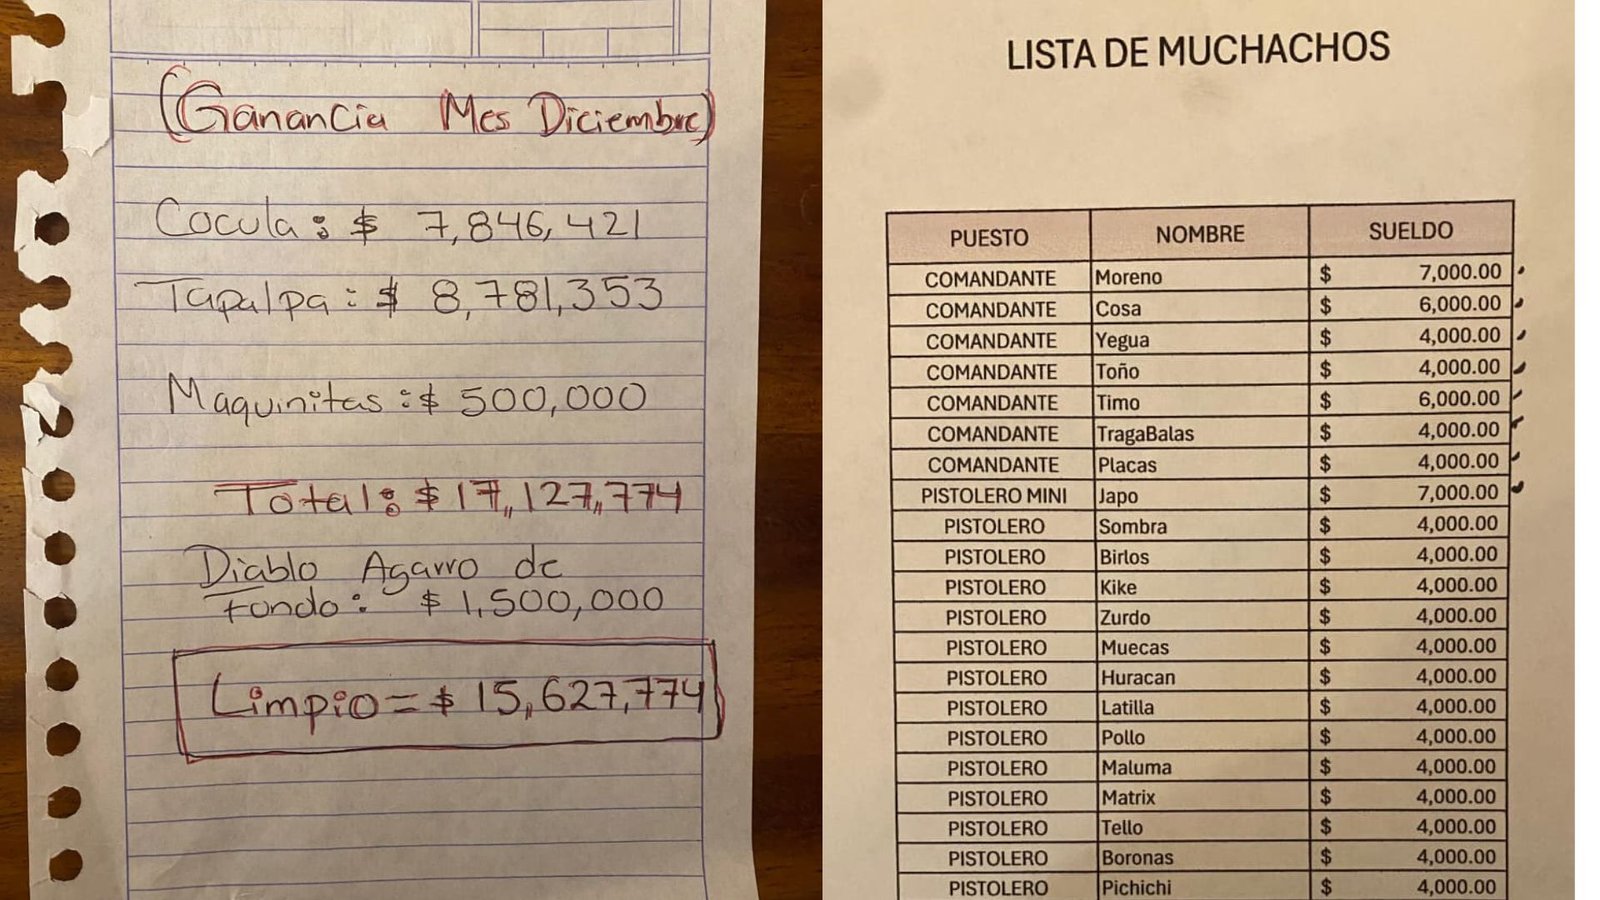 (Ganancia Mes Diciembre)
Cocula: $ 7,846,421
Tapalpa: $ 8,781,353
Maquinitas: $ 500,000
Total: $ 17,127,774
Diablo Agarro de
fondo: $ 1,500,000
Limpio = $ 15,627,774
LISTA DE MUCHACHOS
PUESTO NOMBRE SUELDO
COMANDANTE Moreno $ 7,000.00
COMANDANTE Cosa $ 6,000.00
COMANDANTE Yegua $ 4,000.00
COMANDANTE Toño $ 4,000.00
COMANDANTE Timo $ 6,000.00
COMANDANTE TragaBalas $ 4,000.00
COMANDANTE Placas $ 4,000.00
PISTOLERO MINI Japo $ 7,000.00
PISTOLERO Sombra $ 4,000.00
PISTOLERO Birlos $ 4,000.00
PISTOLERO Kike $ 4,000.00
PISTOLERO Zurdo $ 4,000.00
PISTOLERO Muecas $ 4,000.00
PISTOLERO Huracan $ 4,000.00
PISTOLERO Latilla $ 4,000.00
PISTOLERO Pollo $ 4,000.00
PISTOLERO Maluma $ 4,000.00
PISTOLERO Matrix $ 4,000.00
PISTOLERO Tello $ 4,000.00
PISTOLERO Boronas $ 4,000.00
PISTOLERO Pichichi $ 4,000.00